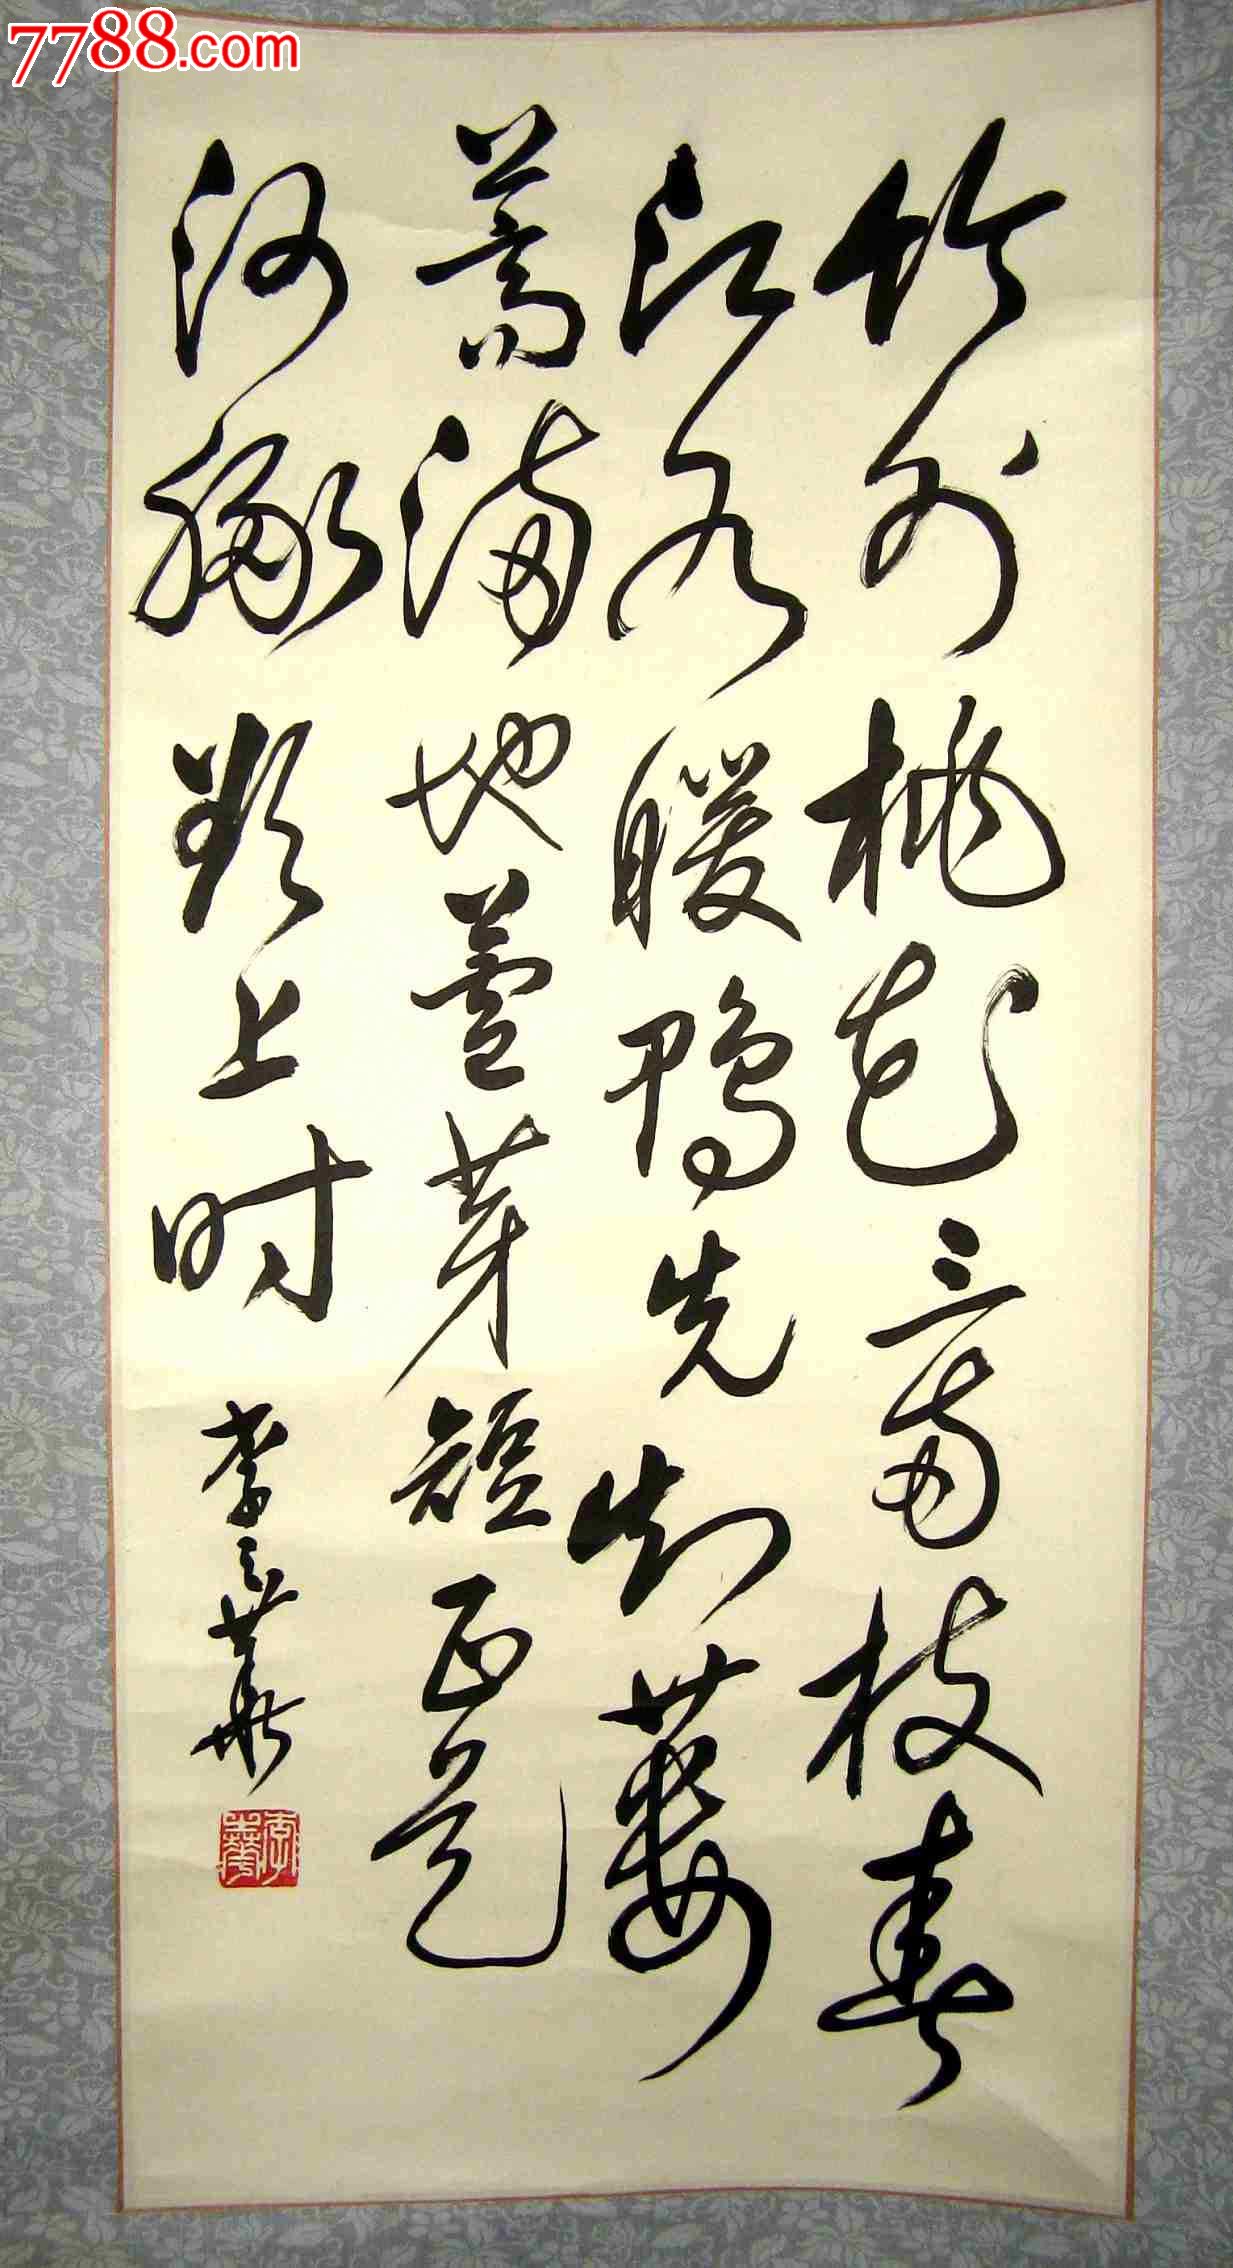 7788.com
竹外桃花三两枝春
江水暖鸭先知蔞
蒿满地蘆芽短正是
河豚欲上时